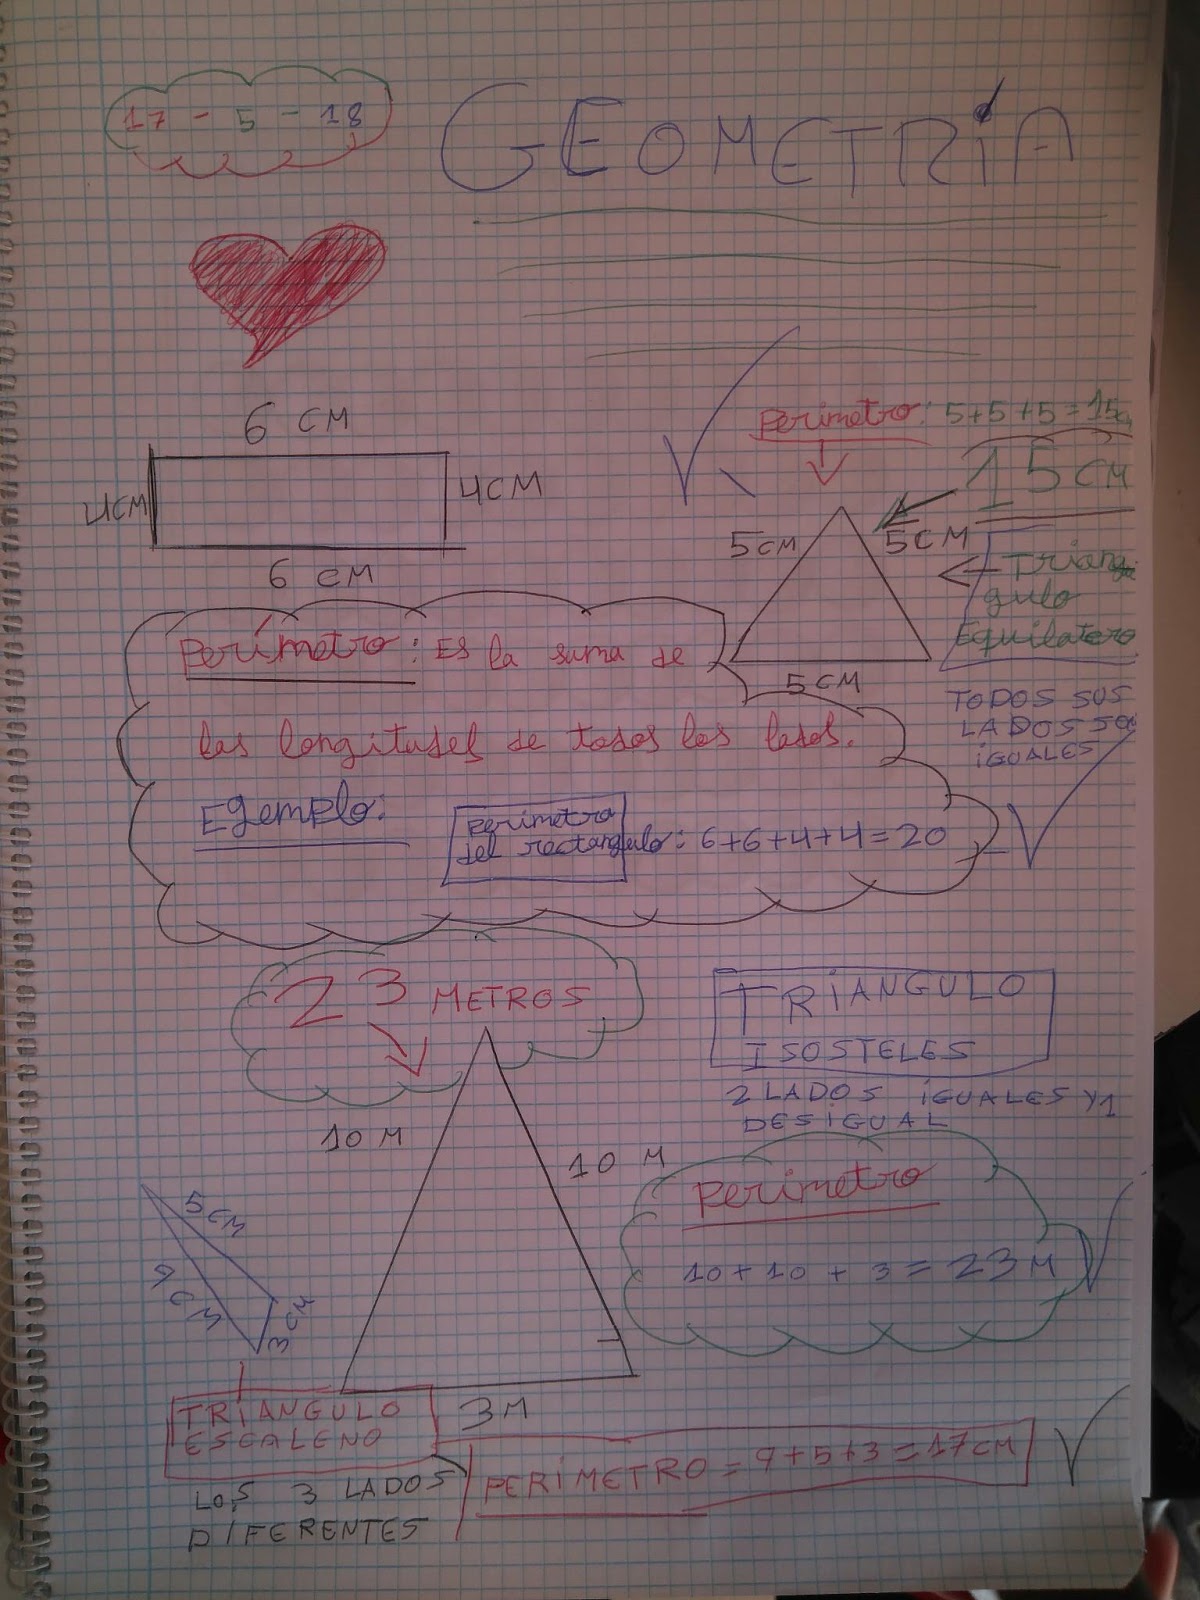 17 - 5 - 18
GEOMETRíA
6 CM
4CM
4CM
6 CM
Perimetro: 5+5+5=15c
15 CM
5CM
5CM
5CM
Trian
gulo
Equilatero
TODOS SUS
LADOS SO
iGUALES
Perímetro: Es la suma de
las longitudes de todos los lados.
Egemplo:
perimetro
del rectangulo: 6+6+4+4=20
23 METROS
10 M
10 M
3M
TRiANGULO
ISOSTELES
2 LADOS iGUALES Y 1
DESiGUAL
Perimetro
10+10+3=23M
5CM
9CM
3CM
TRiANGULO
ESCALENO
LOS 3 LADOS
DiFERENTES
PERíMETRO = 9+5+3=17CM